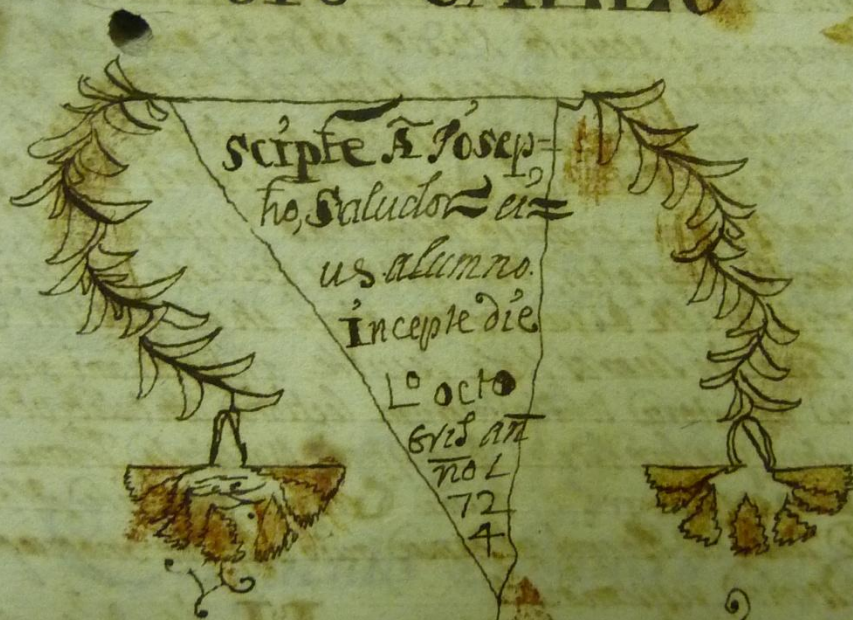 scipte Ā Josep=
ho, Saludor= ei=
us alumno.
incepte die
Lº octo
bris an̄
no 1
72
4